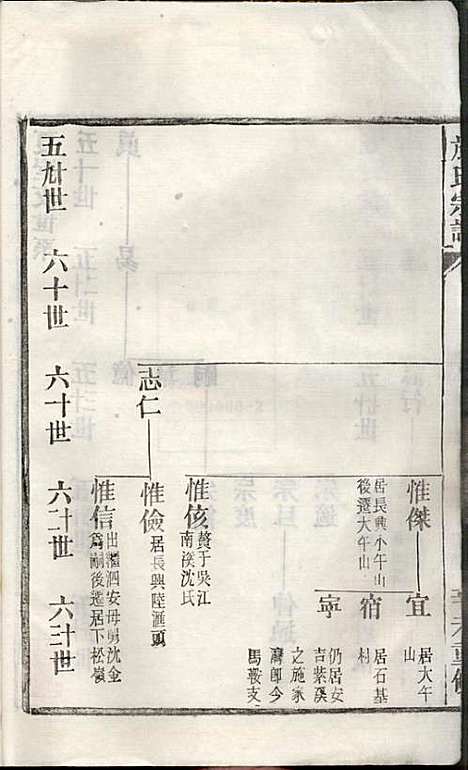 施氏宗譜
惟傑
居長興小午山
後遷大午山
宜
居大午
山
宿
居石基
村
寧
仍居安
吉紫溪
之施家
灣即今
馬鞍支
惟侅
贅于吳江
南潯沈氏
志仁
惟儉
居長興陸滙頭
惟信
出繼泗安母舅沈金
爲嗣後遷居下松嶺
五十九世
六十世
六十一世
六十二世
六十三世